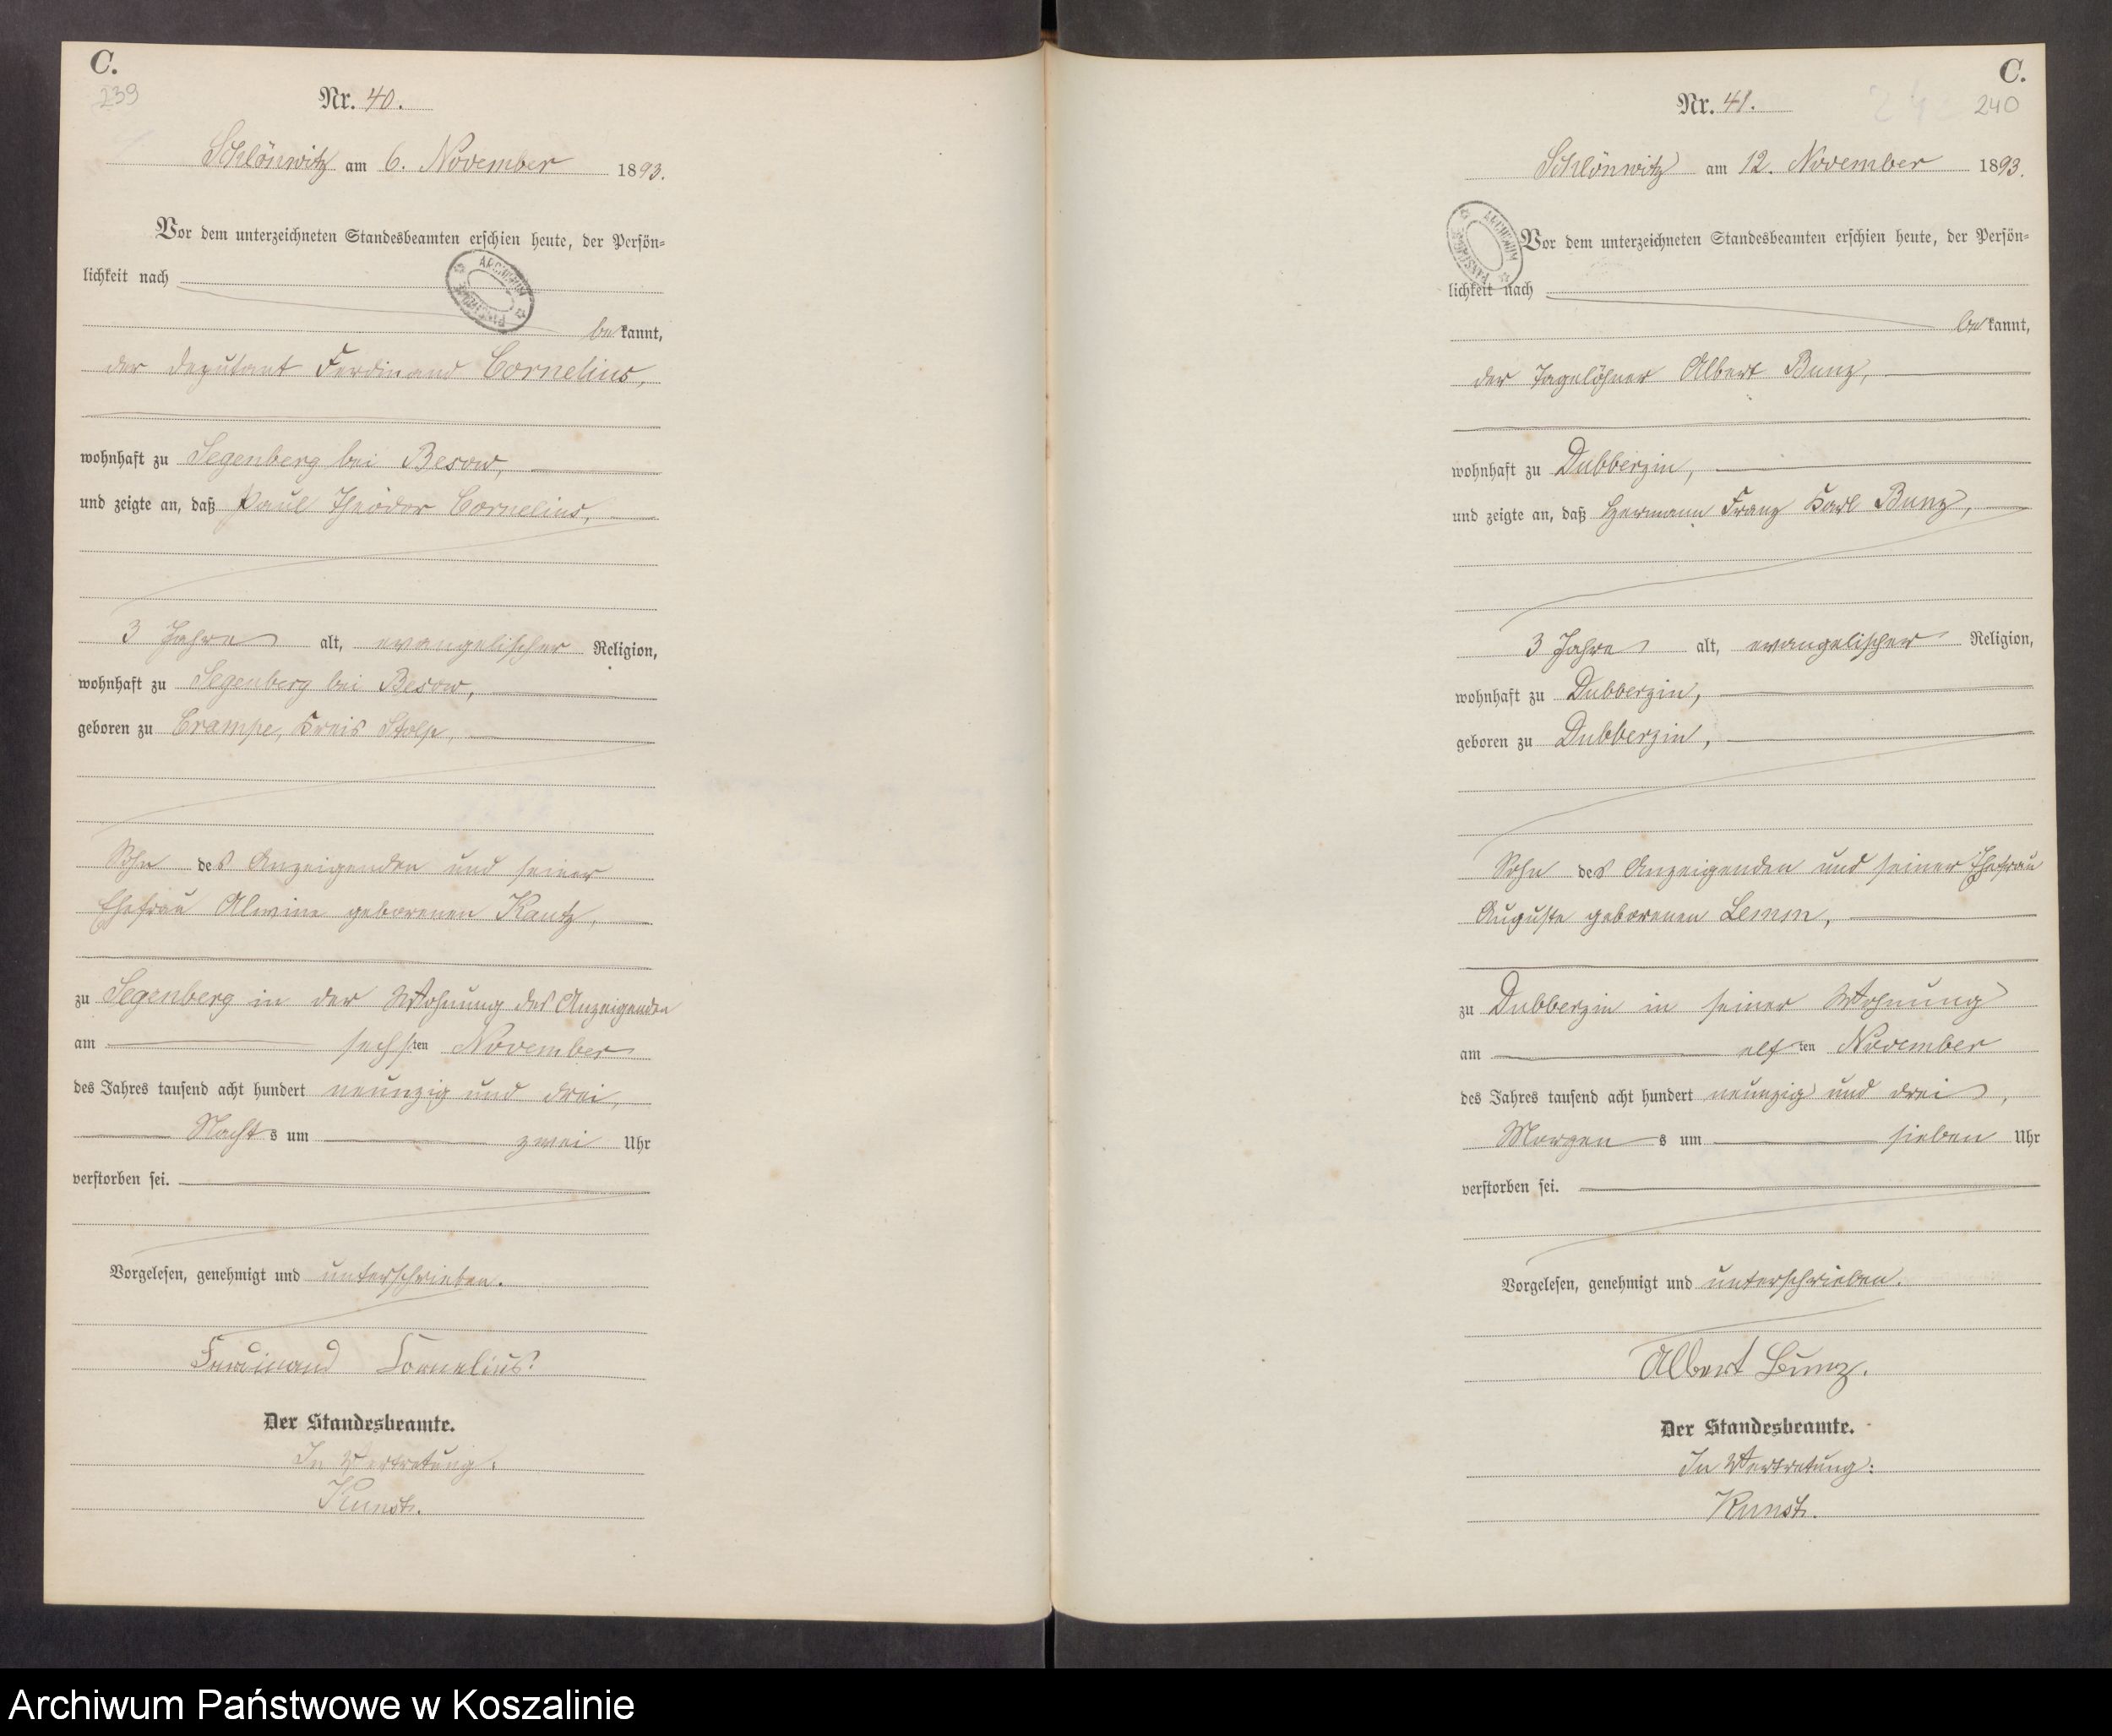 C.
239
Nr. 40.
Schlönwitz am 6. November 1893.
Vor dem unterzeichneten Standesbeamten erschien heute, der Persön=
lichkeit nach
bekannt,
der Deputant Ferdinand Cornelius,
wohnhaft zu Segenberg bei Besow,
und zeigte an, daß Paul Theodor Cornelius,
3 Jahre alt, evangelischer Religion,
wohnhaft zu Segenberg bei Besow,
geboren zu Crampe, Kreis Stolp,
Sohn des Anzeigenden und seiner
Ehefrau Alwine geborenen Kautz,
zu Segenberg in der Wohnung des Anzeigenden
am sechsten November
des Jahres tausend acht hundert neunzig und drei,
Nachts um zwei Uhr
verstorben sei.
Vorgelesen, genehmigt und unterschrieben.
Ferdinand Cornelius.
Der Standesbeamte.
In Vertretung:
Kunst.
C.
240
Nr. 41.
Schlönwitz am 12. November 1893.
Vor dem unterzeichneten Standesbeamten erschien heute, der Persön=
lichkeit nach
bekannt,
der Tagelöhner Albert Bunz,
wohnhaft zu Dubberzin,
und zeigte an, daß Hermann Franz Karl Bunz,
3 Jahre alt, evangelischer Religion,
wohnhaft zu Dubberzin,
geboren zu Dubberzin,
Sohn des Anzeigenden und seiner Ehefrau
Auguste geborenen Lemm,
zu Dubberzin in seiner Wohnung
am elften November
des Jahres tausend acht hundert neunzig und drei,
Morgens um sieben Uhr
verstorben sei.
Vorgelesen, genehmigt und unterschrieben.
Albert Bunz.
Der Standesbeamte.
In Vertretung:
Kunst.
Archiwum Państwowe w Koszalinie